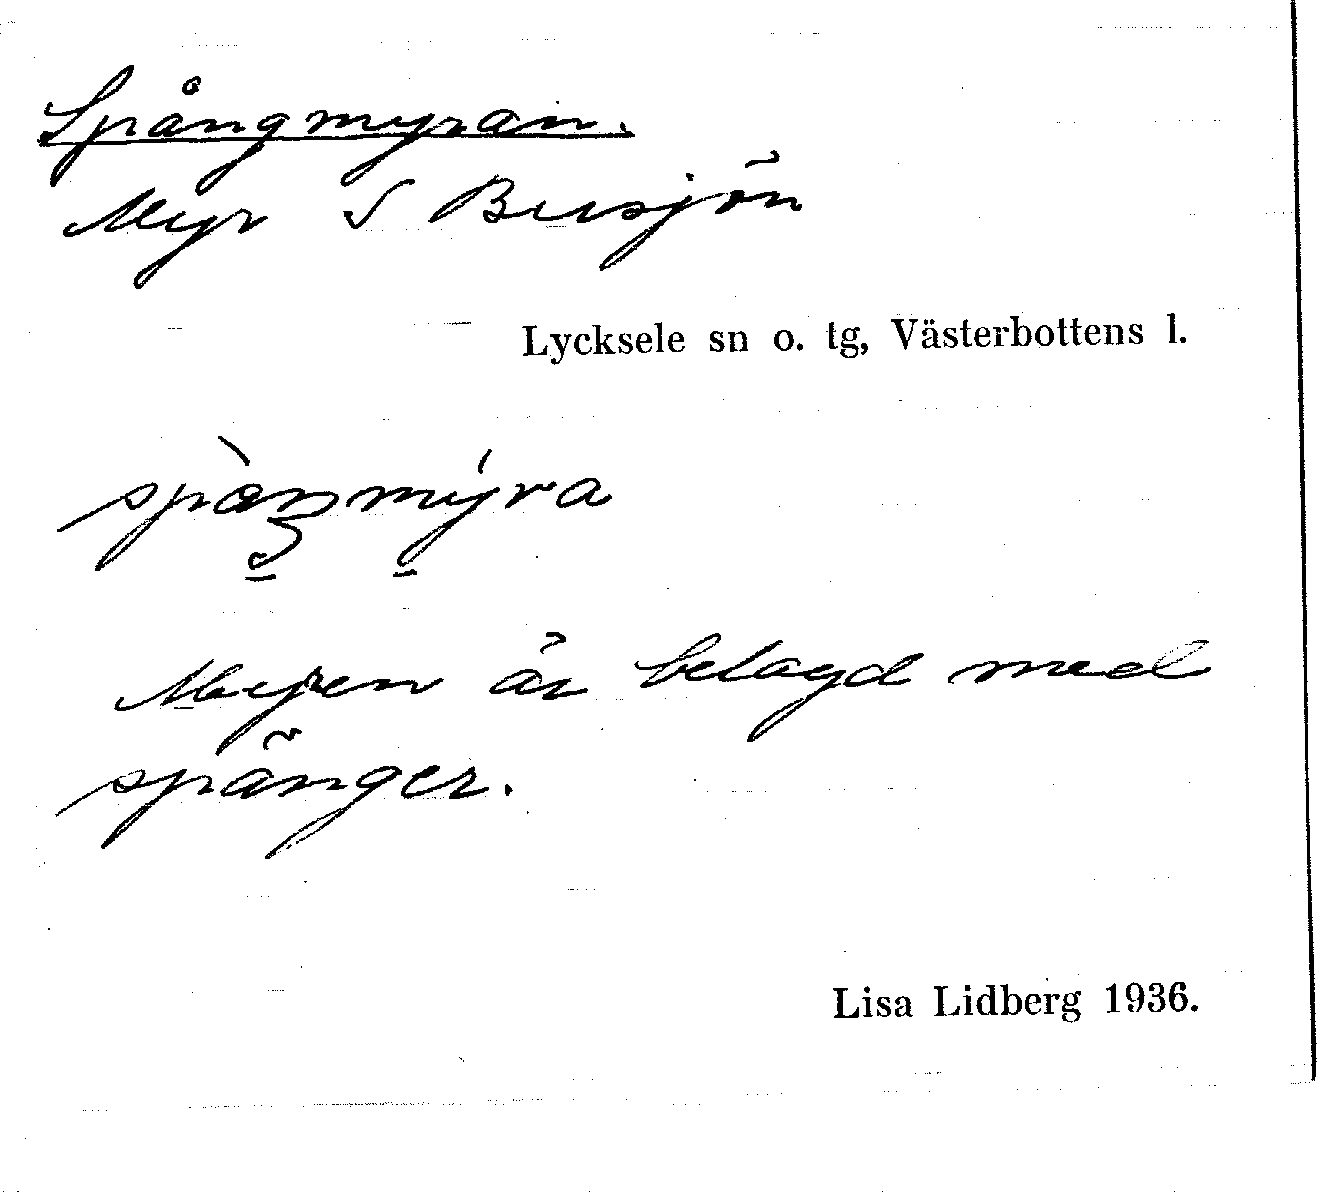 Spångmyran.
Myr S Busjön
Lycksele sn o. tg, Västerbottens l.
spàŋmýra
Myren är belagd med
spänger.
Lisa Lidberg 1936.